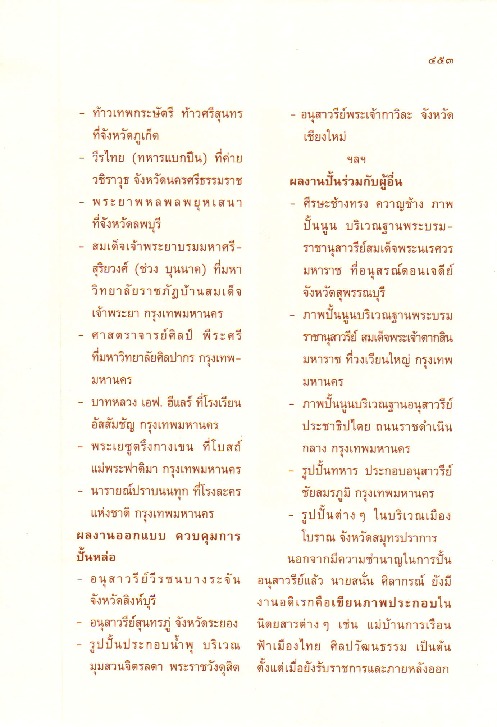 ๔๕๓
- ท้าวเทพกระษัตรี ท้าวศรีสุนทร
ที่จังหวัดภูเก็ต
- วีรไทย (ทหารแบกปืน) ที่ค่าย
วชิราวุธ จังหวัดนครศรีธรรมราช
- พระยาพหลพลพยุหเสนา
ที่จังหวัดลพบุรี
- สมเด็จเจ้าพระยาบรมมหาศรี-
สุริยวงศ์ (ช่วง บุนนาค) ที่มหา
วิทยาลัยราชภัฏบ้านสมเด็จ
เจ้าพระยา กรุงเทพมหานคร
- ศาสตราจารย์ศิลป์ พีระศรี
ที่มหาวิทยาลัยศิลปากร กรุงเทพ-
มหานคร
- บาทหลวง เอฟ. ฮีแลร์ ที่โรงเรียน
อัสสัมชัญ กรุงเทพมหานคร
- พระเยซูตรึงกางเขน ที่โบสถ์
แม่พระฟาติมา กรุงเทพมหานคร
- นารายณ์ปราบนนทุก ที่โรงละคร
แห่งชาติ กรุงเทพมหานคร
ผลงานออกแบบ ควบคุมการ
ปั้นหล่อ
- อนุสาวรีย์วีรชนบางระจัน
จังหวัดสิงห์บุรี
- อนุสาวรีย์สุนทรภู่ จังหวัดระยอง
- รูปปั้นประกอบน้ำพุ บริเวณ
มุมสวนจิตรลดา พระราชวังดุสิต
- อนุสาวรีย์พระเจ้ากาวิละ จังหวัด
เชียงใหม่
ฯลฯ
ผลงานปั้นร่วมกับผู้อื่น
- ศีรษะช้างทรง ควาญช้าง ภาพ
ปั้นนูน บริเวณฐานพระบรม-
ราชานุสาวรีย์สมเด็จพระนเรศวร
มหาราช ที่อนุสรณ์ดอนเจดีย์
จังหวัดสุพรรณบุรี
- ภาพปั้นนูนบริเวณฐานพระบรม
ราชานุสาวรีย์ สมเด็จพระเจ้าตากสิน
มหาราช ที่วงเวียนใหญ่ กรุงเทพ
มหานคร
- ภาพปั้นนูนบริเวณฐานอนุสาวรีย์
ประชาธิปไตย ถนนราชดำเนิน
กลาง กรุงเทพมหานคร
- รูปปั้นทหาร ประกอบอนุสาวรีย์
ชัยสมรภูมิ กรุงเทพมหานคร
- รูปปั้นต่าง ๆ ในบริเวณเมือง
โบราณ จังหวัดสมุทรปราการ
นอกจากมีความชำนาญในการปั้น
อนุสาวรีย์แล้ว นายสนั่น ศิลากรณ์ ยังมี
งานอดิเรกคือเขียนภาพประกอบใน
นิตยสารต่าง ๆ เช่น แม่บ้านการเรือน
ฟ้าเมืองไทย ศิลปวัฒนธรรม เป็นต้น
ตั้งแต่เมื่อยังรับราชการและภายหลังออก